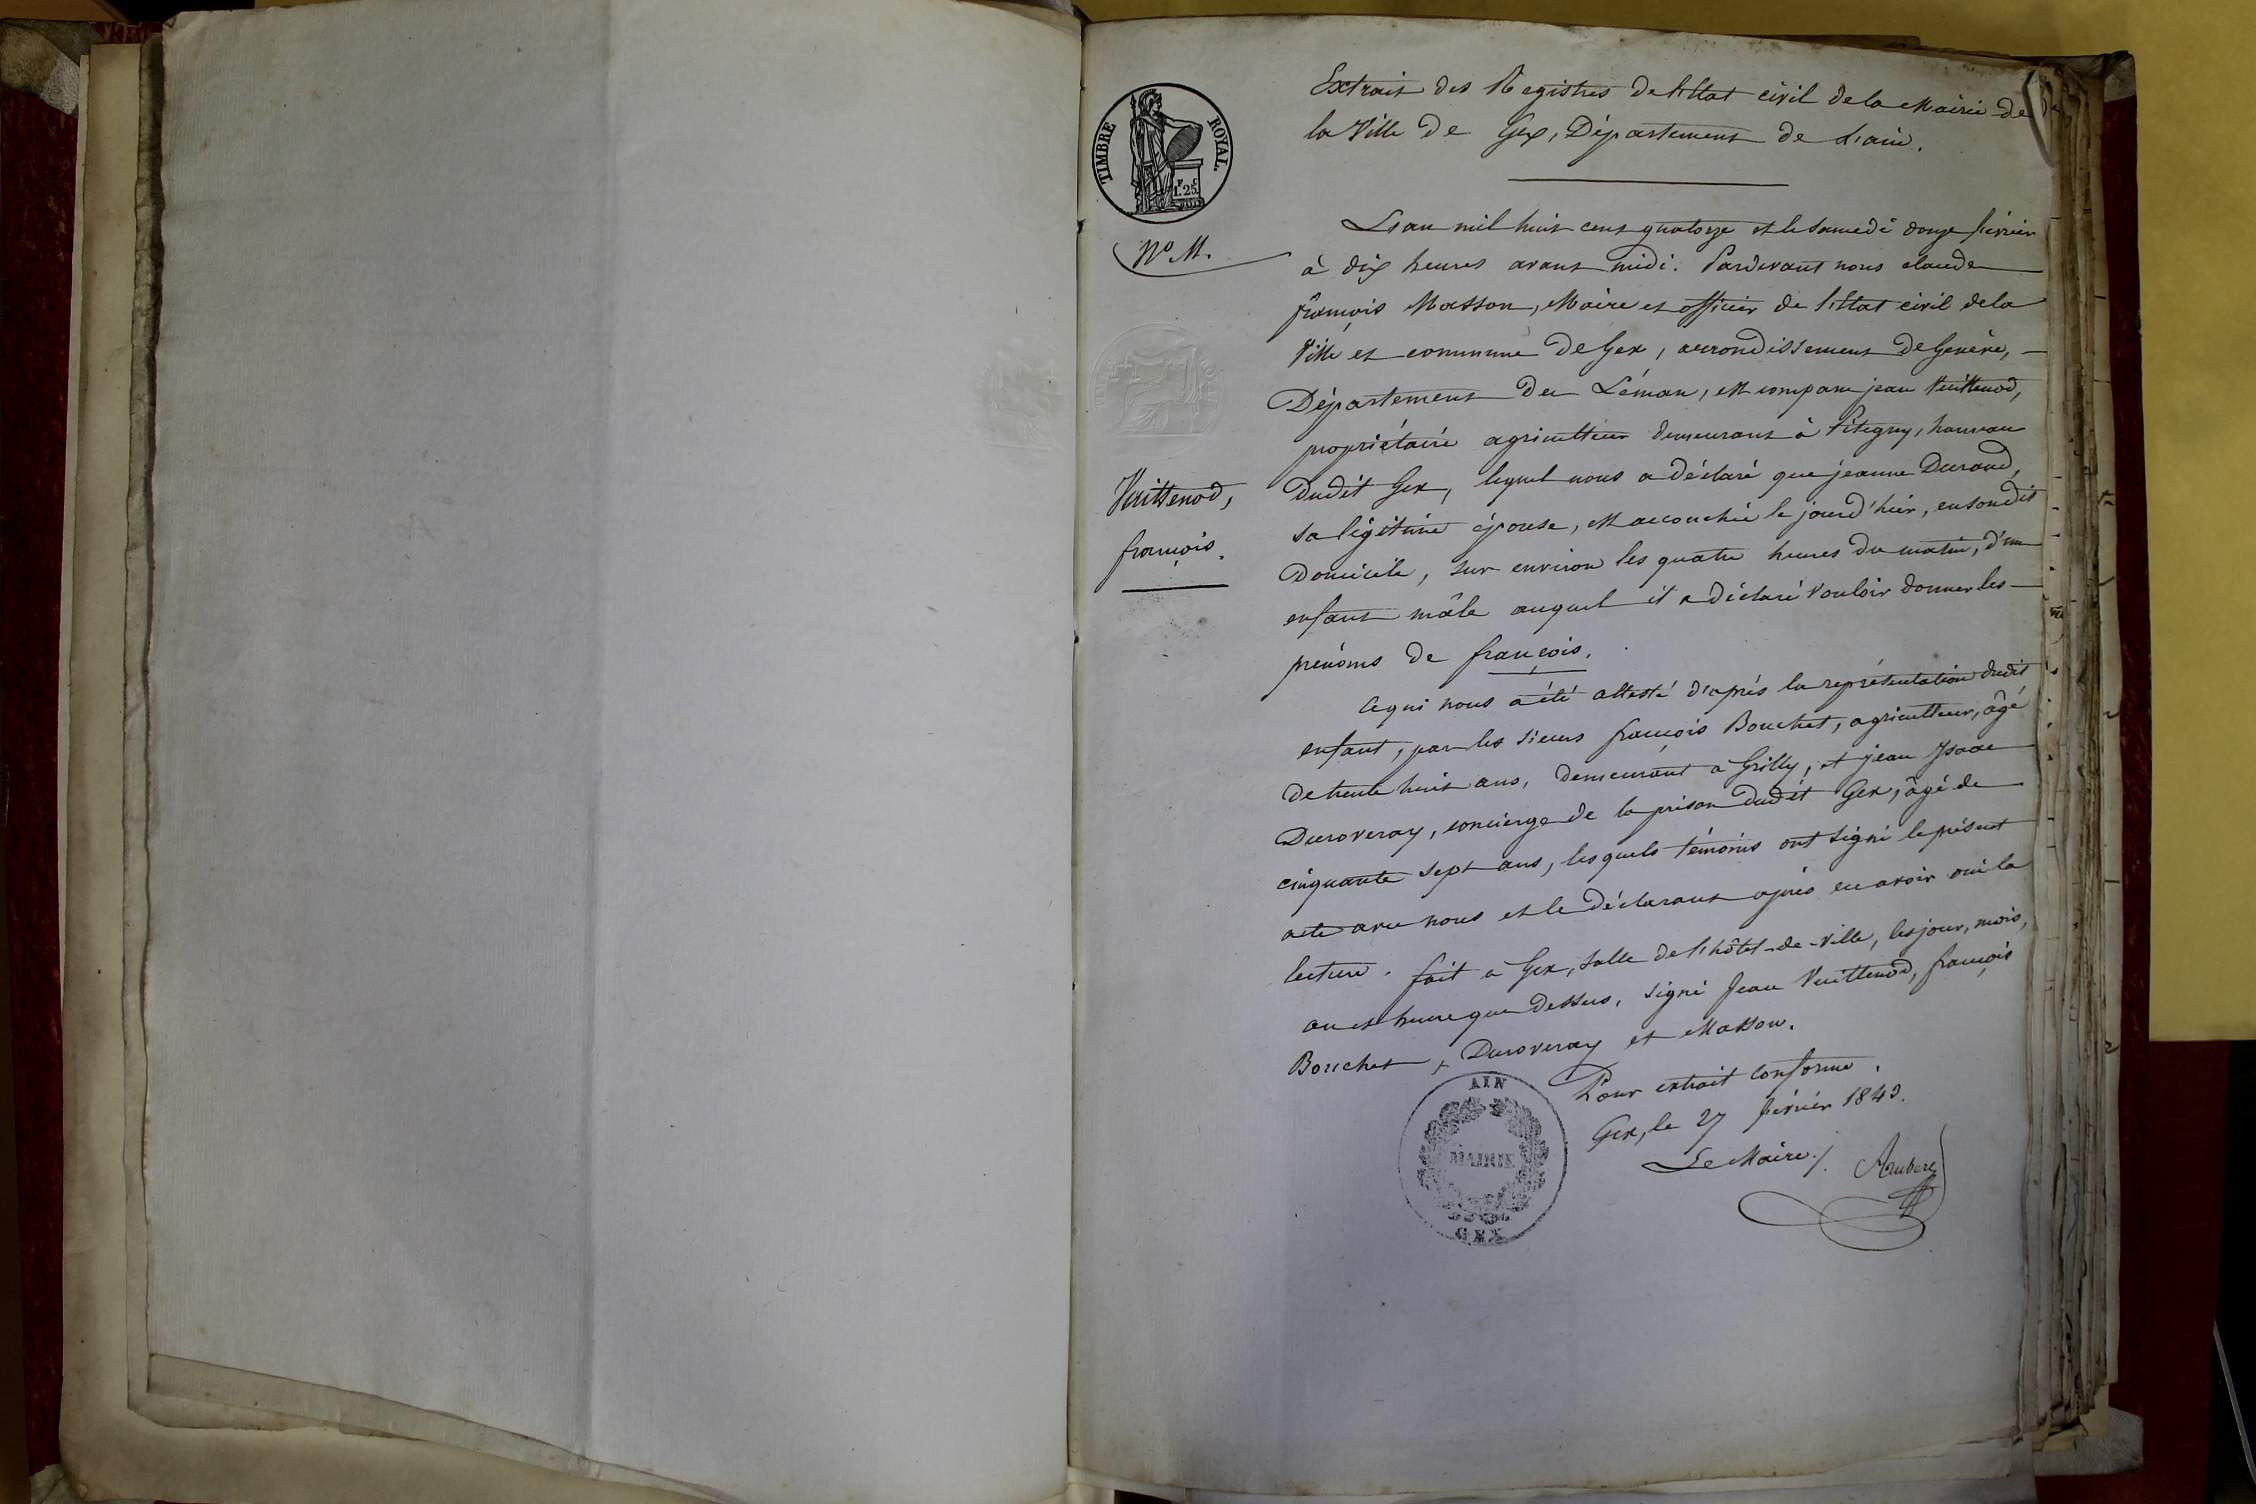 Extrait des Registres de l'Etat civil de la Mairie de
la Ville de Gex, Département de l'ain.
TIMBRE ROYAL.
F C
1.25
N° 11.
L'an mil huit cent quatorze et le samedi douze février
à dix heures avant midi. Pardevant nous claude
françois Masson, Maire et officier de l'Etat civil dela
Ville et commune De Gex, arrondissement De Genève,
Département du Léman, est comparu jean Vuittenod,
propriétaire agriculteur demeurant à Pitegny, hameau
dudit Gex, lequel nous a déclaré que jeanne Durand,
Vuittenod,
françois.
sa légitime épouse, est accouchée le jourd'hier, en son dit
Domicile, sur environ les quatre heures du matin, d'un
enfant mâle auquel il a déclaré vouloir donner les
prénoms de françois.
Ce qui nous a été attesté d'après la représentation dudit
enfant, par les sieurs françois Bouchet, agriculteur, âgé
de trente huit ans, demeurant à Grilly, et jean Isaac
Duroveray, concierge de la prison dudit Gex, âgé de
cinquante sept ans, lesquels témoins ont signé le présent
acte avec nous et le déclarant après en avoir ouï la
lecture. fait à Gex, salle de l'hôtel-de-ville, les jour, mois,
an et heure que dessus. signé Jean Vuittenod, françois
Bouchet, Duroveray et Masson.
Pour extrait conforme.
Gex, le 27 février 1843.
Le Maire,
AIN
MAIRIE
GEX